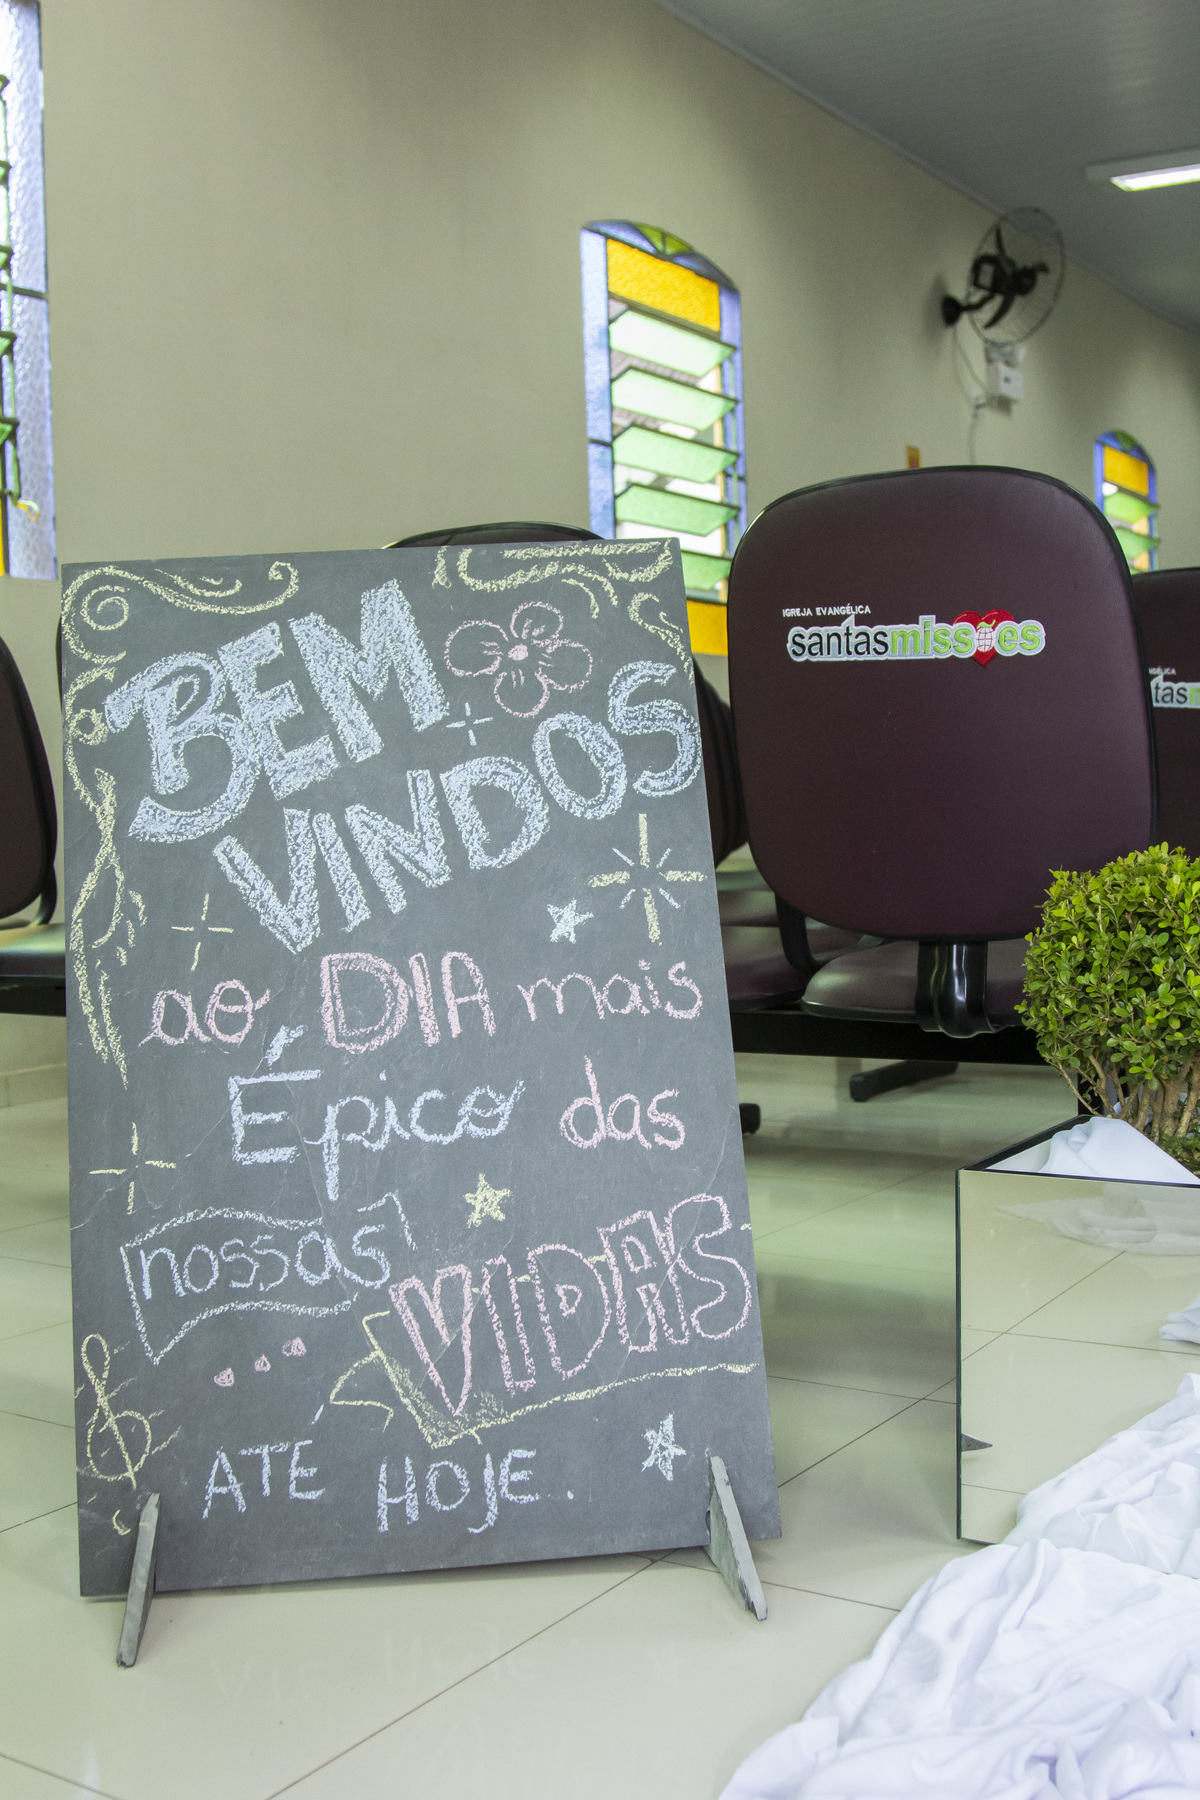 BEM
VINDOS
ao DIA mais
Épico das
nossas
VIDAS
...
ATÉ HOJE.
IGREJA EVANGÉLICA
santasmissões